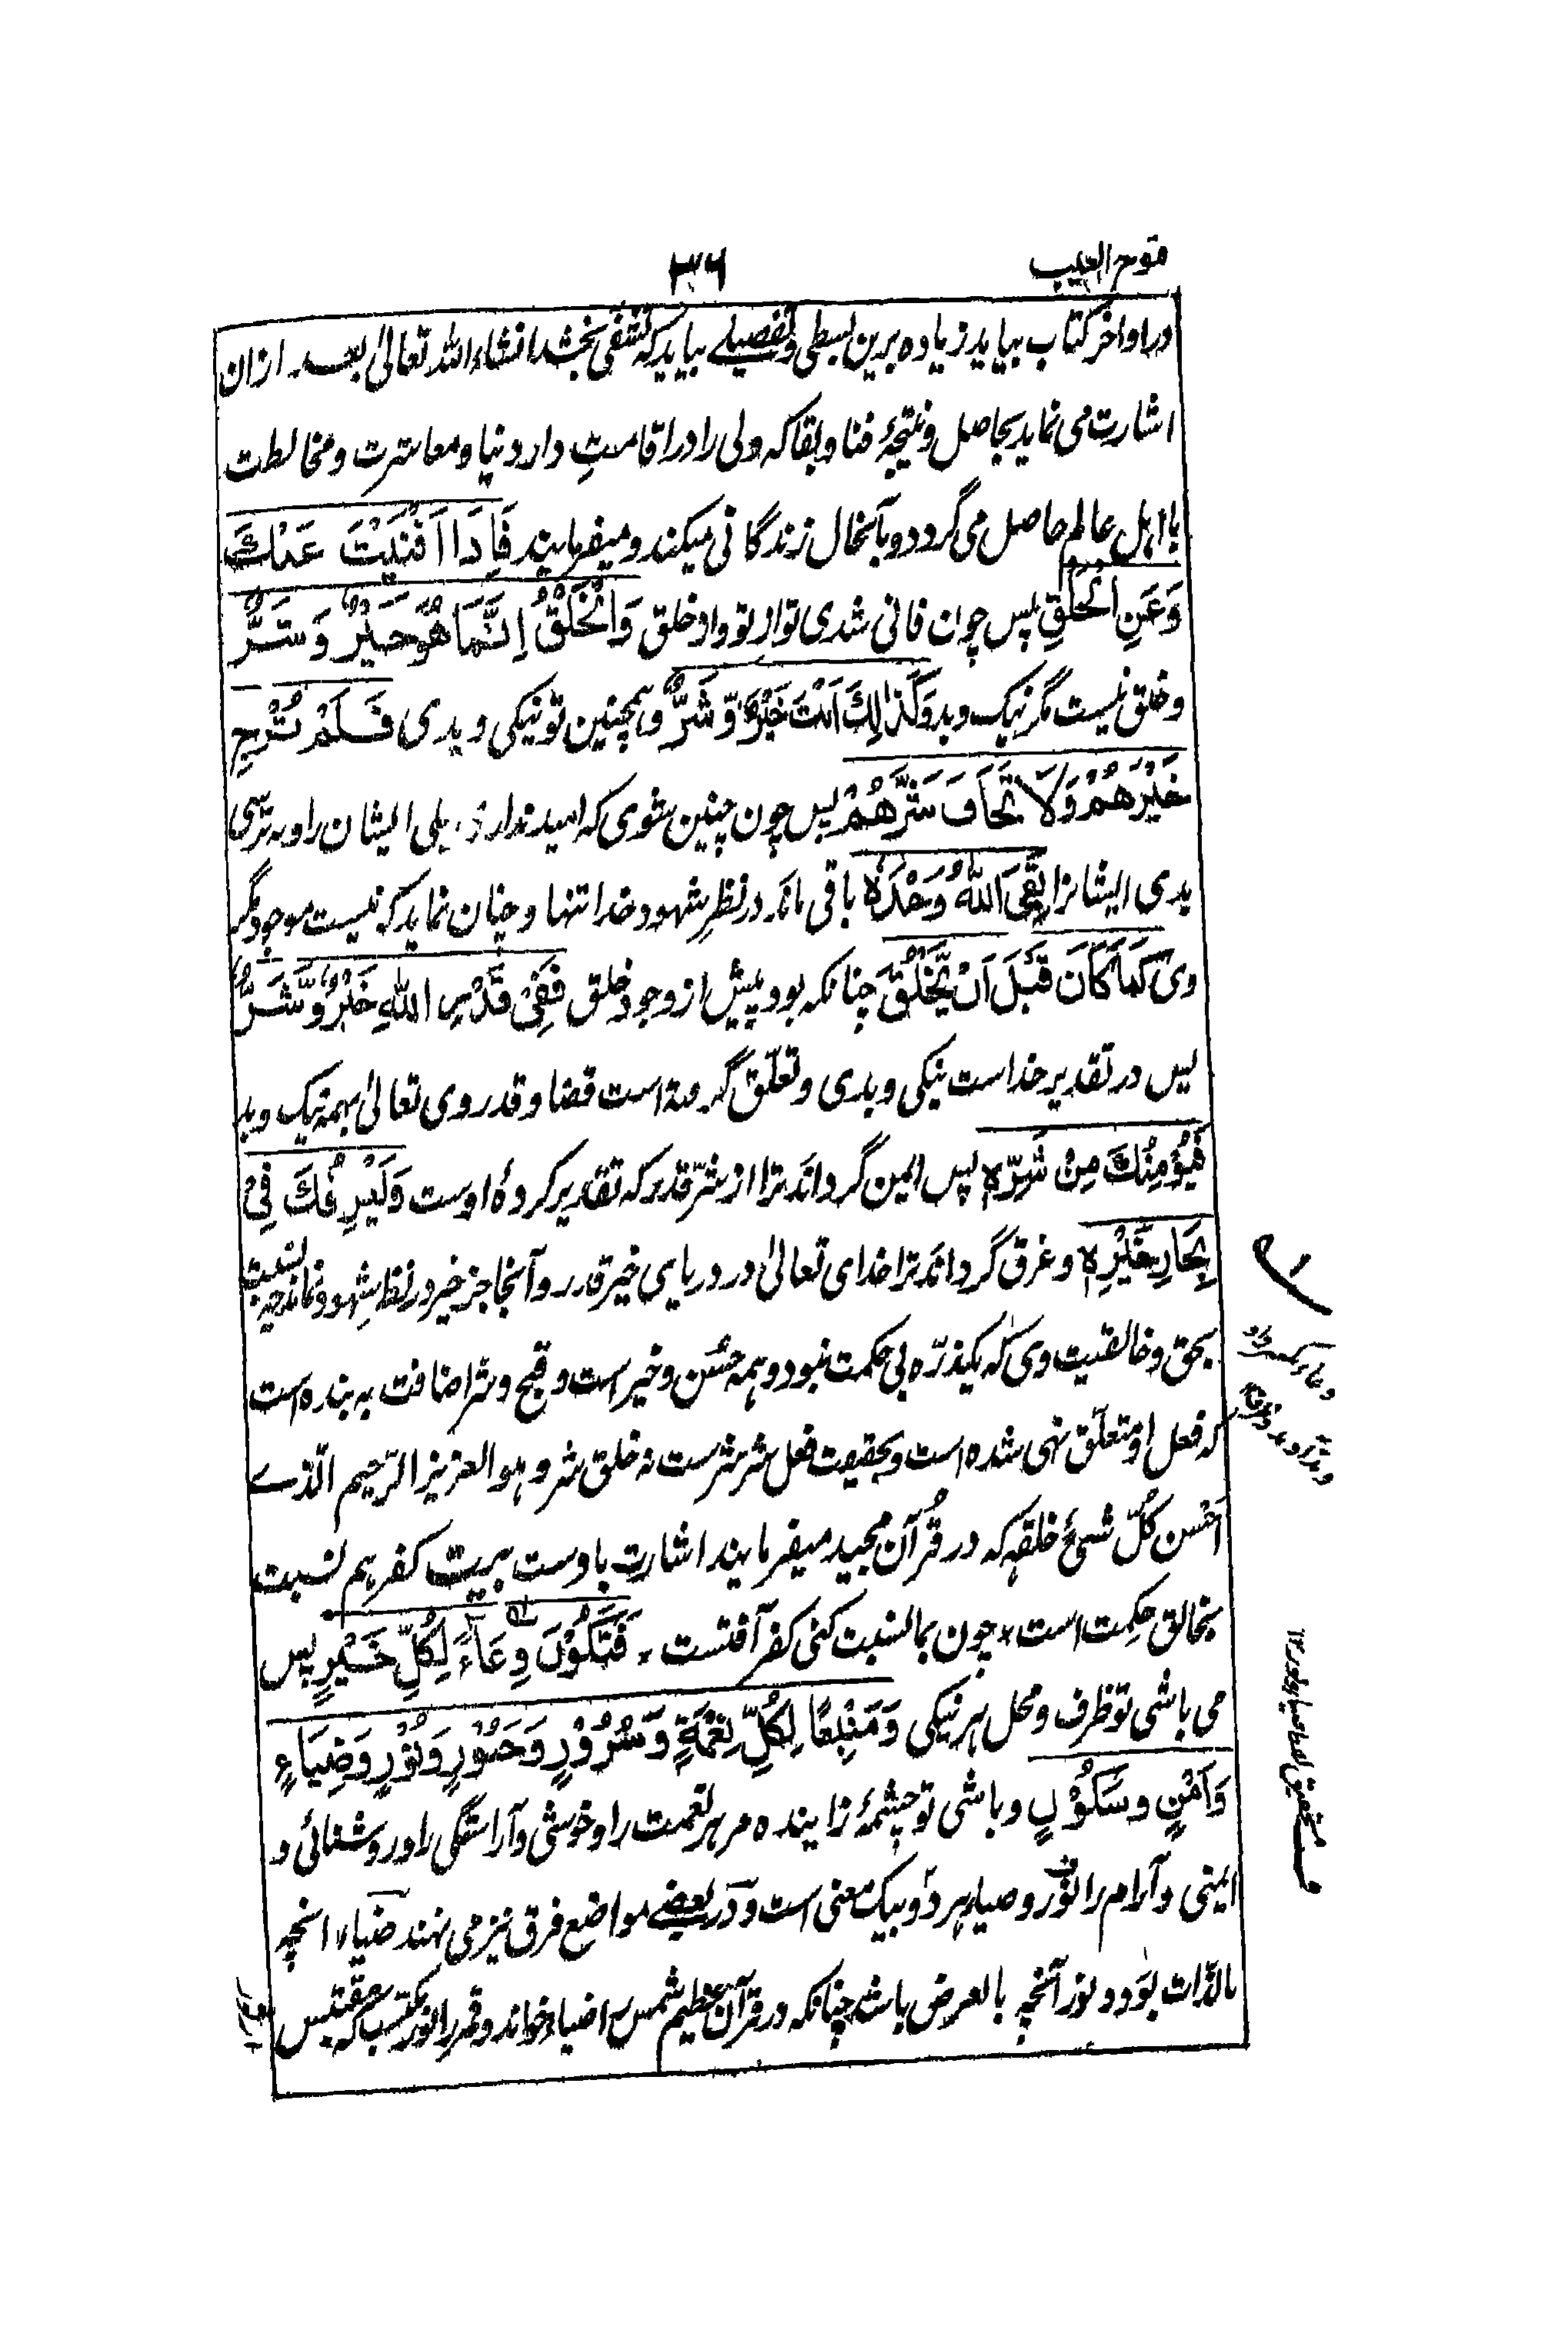 فتوح الغیب
۳۶
در اواخر کتاب بیاید زیاده برین بسطی و تفصیلے بیاید که تشفی بخشد انشاء الله تعالیٰ بعد ازان
اشارت می نماید بحاصل و نتیجۂ فنا و بقا که ولی را در اقامتِ دار دنیا و معاشرت و مخالطت
با اہل عالم حاصل می گردد و بآنحال زندگانی میکند و میفرمایند فَاِذَا اَفْنَیْتَ عَنْكَ
وَعَنِ الْخَلْقِ پس چون فانی شدی تو از تو و از خلق وَالْخَلْقُ اِنَّمَا هُوَ خَیْرٌ وَشَرٌّ
و خلق نیست مگر نیک و بد وَكَذٰلِكَ اَنْتَ خَیْرٌ وَّشَرٌّ و ہمچنین تو نیکی و بدی فَلَمْ تَرْجِ
خَیْرَهُمْ وَلَا تَخَافُ شَرَّهُمْ پس چون چنین شوی که امید نداری نیکی ایشان را و نہ ترسی
بدی ایشانرا بَقِیَ اللّٰهُ وَحْدَهٗ باقی ماند در نظرِ شہود خدا تنہا و چنان نماید که نیست موجود مگر
وی كَمَا كَانَ قَبْلَ اَنْ یَّخْلُقَ چنانکہ بود پیش از وجود خلق فَفِیْ قَدَرِ اللّٰهِ خَیْرٌ وَّشَرٌّ
پس در تقدیر خداست نیکی و بدی و تعلّق گرفته است قضا و قدر وی تعالیٰ بہمہ نیک و بد
فَیُؤْمِنُكَ مِنْ شَرِّهٖ پس ایمن گرداند ترا از شرّ قدر که تقدیر کردۂ اوست وَیُغْرِقُكَ فِیْ
بِحَارِ خَیْرِهٖ و غرق گرداند ترا خدای تعالیٰ در دریای خیر قدر و آنجا جز خیر در نظرِ شہود نماند چہ نسبت
بحق و خالقیت وی که یکذرّه بی حکمت نبود و ہمہ حسن و خیر است و قبح و شر اضافت به بنده است
که فعل او متعلّق نہی شده است و بحقیقت فعل شر شرست نہ خلق شر و ہو العزیز الرّحیم الّذے
احسن کلّ شیئ خلقہ که در قُرآن مجید میفرمایند اشارت باوست بیت کفر ہم نسبت
بخالق حکمت است * چون بما نسبت کنی کفر آفتست * فَتَكُوْنَ وِعَاءً لِكُلِّ خَیْرٍ پس
می باشی تو ظرف و محل ہر نیکی وَمَنْبَعًا لِكُلِّ نِعْمَةٍ وَّسُرُوْرٍ وَحُبُوْرٍ وَنُوْرٍ وَضِیَاءٍ
وَاَمْنٍ وَسُكُوْنٍ و باشی تو چشمۂ زاینده مر ہر نعمت را و خوشی و آراستگی را و روشنائی و
ایمنی و آرام را نور و ضیا ہر دو بیک معنی است و در بعضے مواضع فرق نیز می نہند ضیاء آنچہ
بالذّات بوَد و نور آنچہ بالعرض باشد چنانکہ در قرآن عظیم شمس را ضیاء خواند و قمر را نور مکتسب که مقتبس
ف تحقیق اضاء ضیاء و نور ۱۲